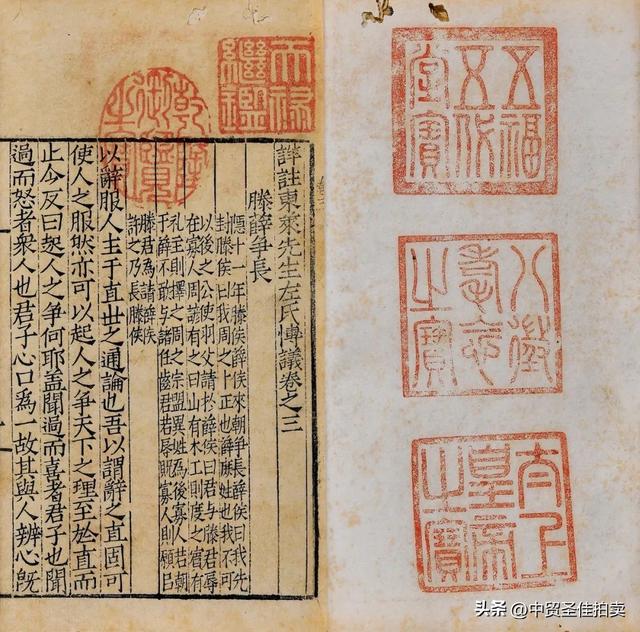 五福
五代
堂寶
八徵
耄念
之寶
太上
皇帝
之寶
天祿
繼鑑
乾隆
御覽
之寶
詳註東萊先生左氏愽議卷之三
滕薛爭長
隱十一年滕侯薛侯來朝爭長薛侯曰我先
封滕侯曰我周之卜正也薛庶姓也我不可
以後之公使羽父請於薛侯曰君与滕君辱
在寡人周諺有之曰山有木工則度之賓有
礼主則擇之周之宗盟異姓為後寡人若朝
于薛不敢与諸任齒君若辱貺寡人則願以
滕君為請薛侯
許之乃長滕侯
以辭服人主于直世之通論也吾以謂辭之直固可
使人之服然亦可以起人之爭天下之理至於直而
止今反曰起人之爭何耶盖聞過而喜者君子也聞
過而怒者衆人也君子心口爲一故其與人辨心旣
头条 @中贸圣佳拍卖